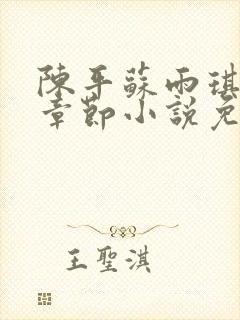 陳平蘇雨琪
章節小說免
王聖淇